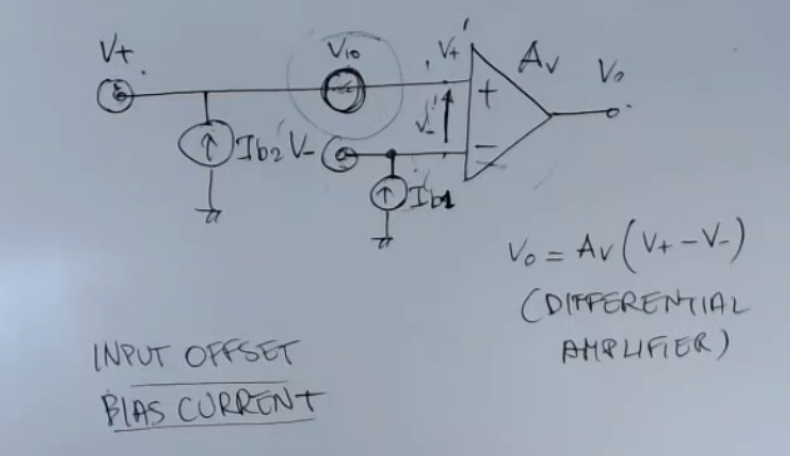 V+
Vio
V+'
Av
Vo
+
Ib2
V-
V-'
−
Ib1
Vo = Av (V+ − V-)
(DIFFERENTIAL
AMPLIFIER)
INPUT OFFSET
BIAS CURRENT